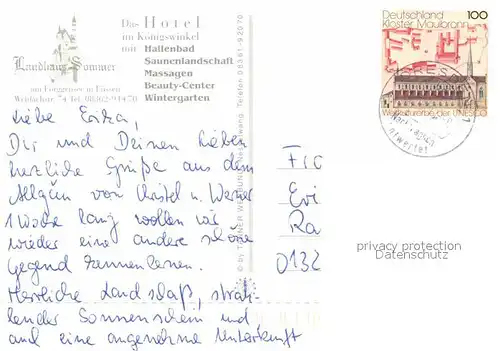 Das Hotel
im Königswinkel
mit Hallenbad
Saunenlandschaft
Massagen
Beauty-Center
Wintergarten
Landhaus Sommer
am Forggensee in Füssen
Weidachstr. 74 Tel. 08362/91470
Telefon 08361-92070
© by TANNER WERBUNG Nesselwang
Deutschland 100
Kloster Maulbronn
Weltkulturerbe der UNESCO
Nachträglich
entwertet
Liebe Erika,
Dir und Deinen lieben
herzliche Grüße aus dem
Allgäu von Christel u. Werner
1 Woche lang wollen wir
wieder eine andere schöne
Gegend kennenlernen.
Herrliche Landschaft, strah-
lender Sonnenschein und
auch eine angenehme Unterkunft
Evi
Ra
0132
privacy protection
Datenschutz